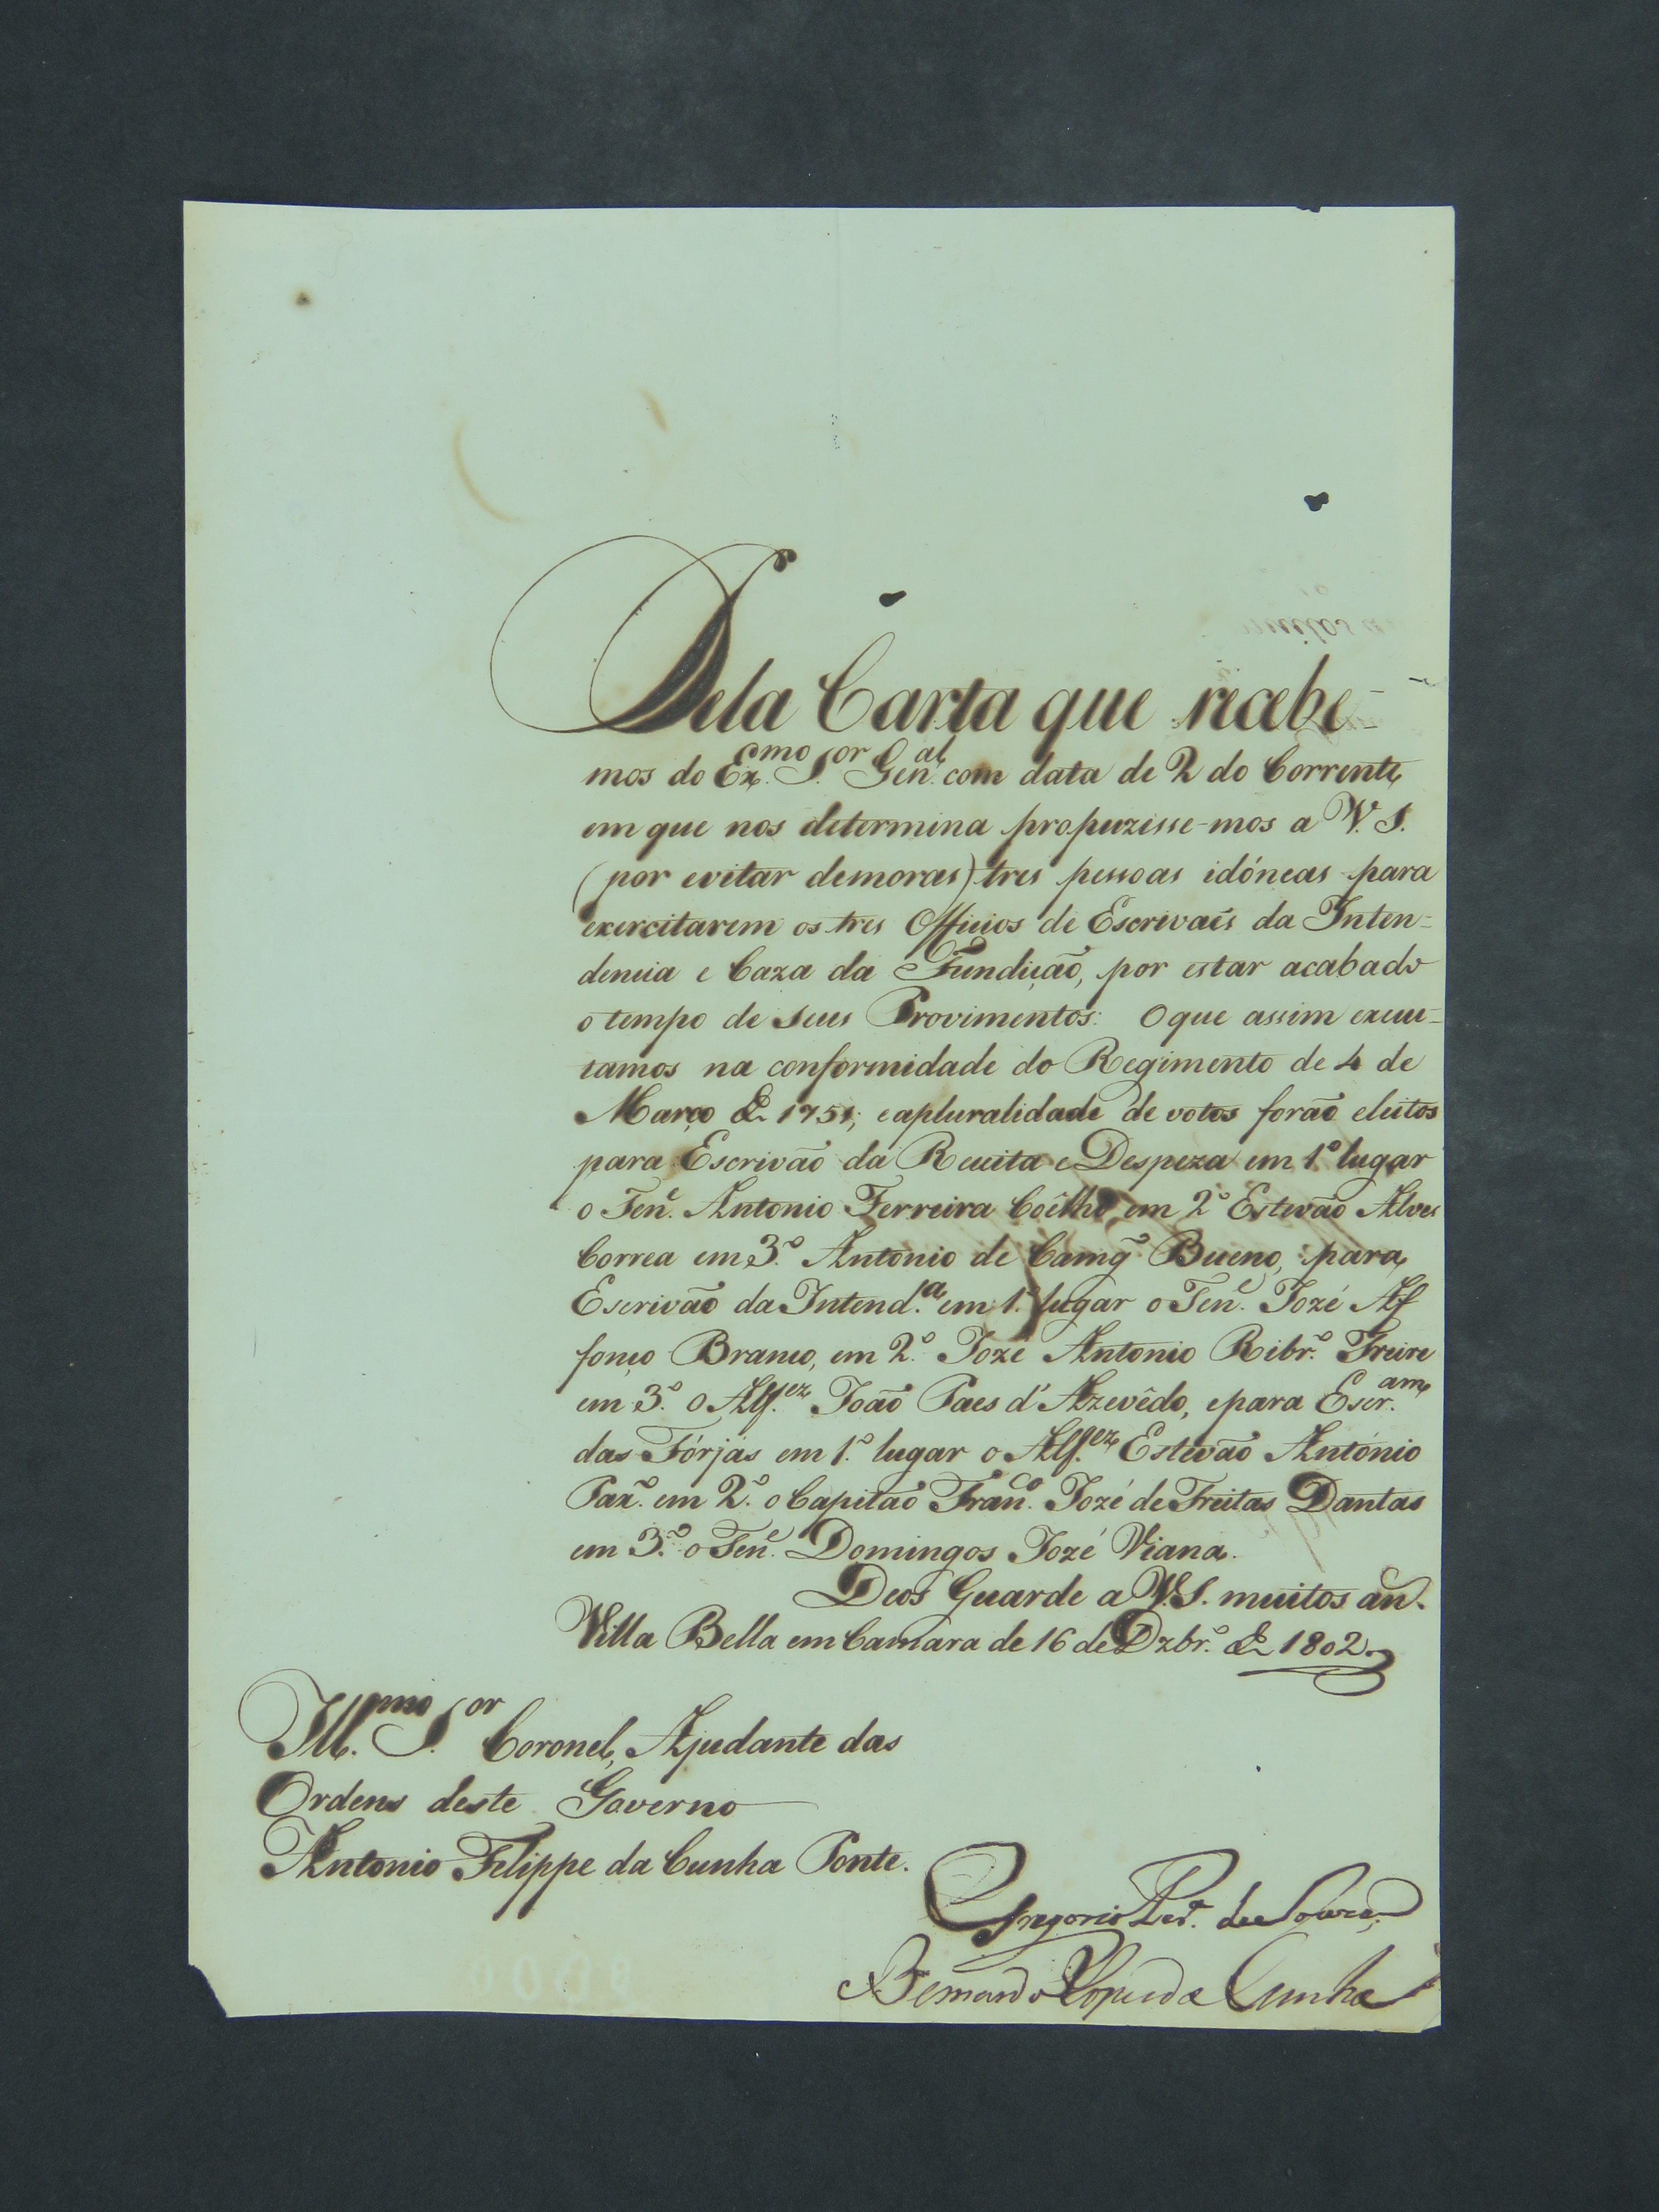 Pela Carta que recebe-
mos do Ex.mo S.or Gen.al com data de 2 do Corrente,
em que nos determina propuzesse-mos a V. S.
(por evitar demoras) tres pessoas idóneas para
exercitarem os tres Officios de Escrivaẽs da Inten-
dencia e Caza da Fundição, por estar acabado
o tempo de seus Provimentos: O que assim execu-
tamos na conformidade do Regimento de 4 de
Março de 1751; e apluralidade de votos forão eleitos
para Escrivão da Receita e Despeza em 1.º lugar
o Ten.e Antonio Ferreira Coêlho, em 2.º Estevão Alves
Correa em 3.º Antonio de Camg.º Bueno, para
Escrivão da Intend.a em 1.º lugar o Ten.e Jozé Af
fonço Branco, em 2.º Jozé Antonio Ribr.º Freire
em 3.º o Alf.ez João Paes d'Azevêdo, epara Escr.am
das Fórjas em 1.º lugar o Alf.ez Estevão António
Pax.º em 2.º o Capitão Fran.co Jozé de Freitas Dantas
em 3.º o Ten.e Domingos Jozé Viana.
Deos Guarde a V.S. muitos an.
Villa Bella em Camara de 16 de Dzbr.º de 1802.
Ill.mo S.or Coronel, Ajudante das
Ordens deste Governo
Antonio Filippe da Cunha Ponte.
Gregorio Per.a de Souza
Bernardo Lopes da Cunha